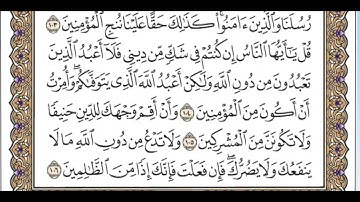 رُسُلَنَا وَٱلَّذِينَ ءَامَنُوا۟ كَذَٰلِكَ حَقًّا عَلَيْنَا نُنجِ ٱلْمُؤْمِنِينَ ١٠٣
قُلْ يَٰٓأَيُّهَا ٱلنَّاسُ إِن كُنتُمْ فِى شَكٍّ مِّن دِينِى فَلَآ أَعْبُدُ ٱلَّذِينَ
تَعْبُدُونَ مِن دُونِ ٱللَّهِ وَلَٰكِنْ أَعْبُدُ ٱللَّهَ ٱلَّذِى يَتَوَفَّىٰكُمْ ۖ وَأُمِرْتُ
أَنْ أَكُونَ مِنَ ٱلْمُؤْمِنِينَ ١٠٤ وَأَنْ أَقِمْ وَجْهَكَ لِلدِّينِ حَنِيفًا
وَلَا تَكُونَنَّ مِنَ ٱلْمُشْرِكِينَ ١٠٥ وَلَا تَدْعُ مِن دُونِ ٱللَّهِ مَا لَا
يَنفَعُكَ وَلَا يَضُرُّكَ ۖ فَإِن فَعَلْتَ فَإِنَّكَ إِذًا مِّنَ ٱلظَّٰلِمِينَ ١٠٦